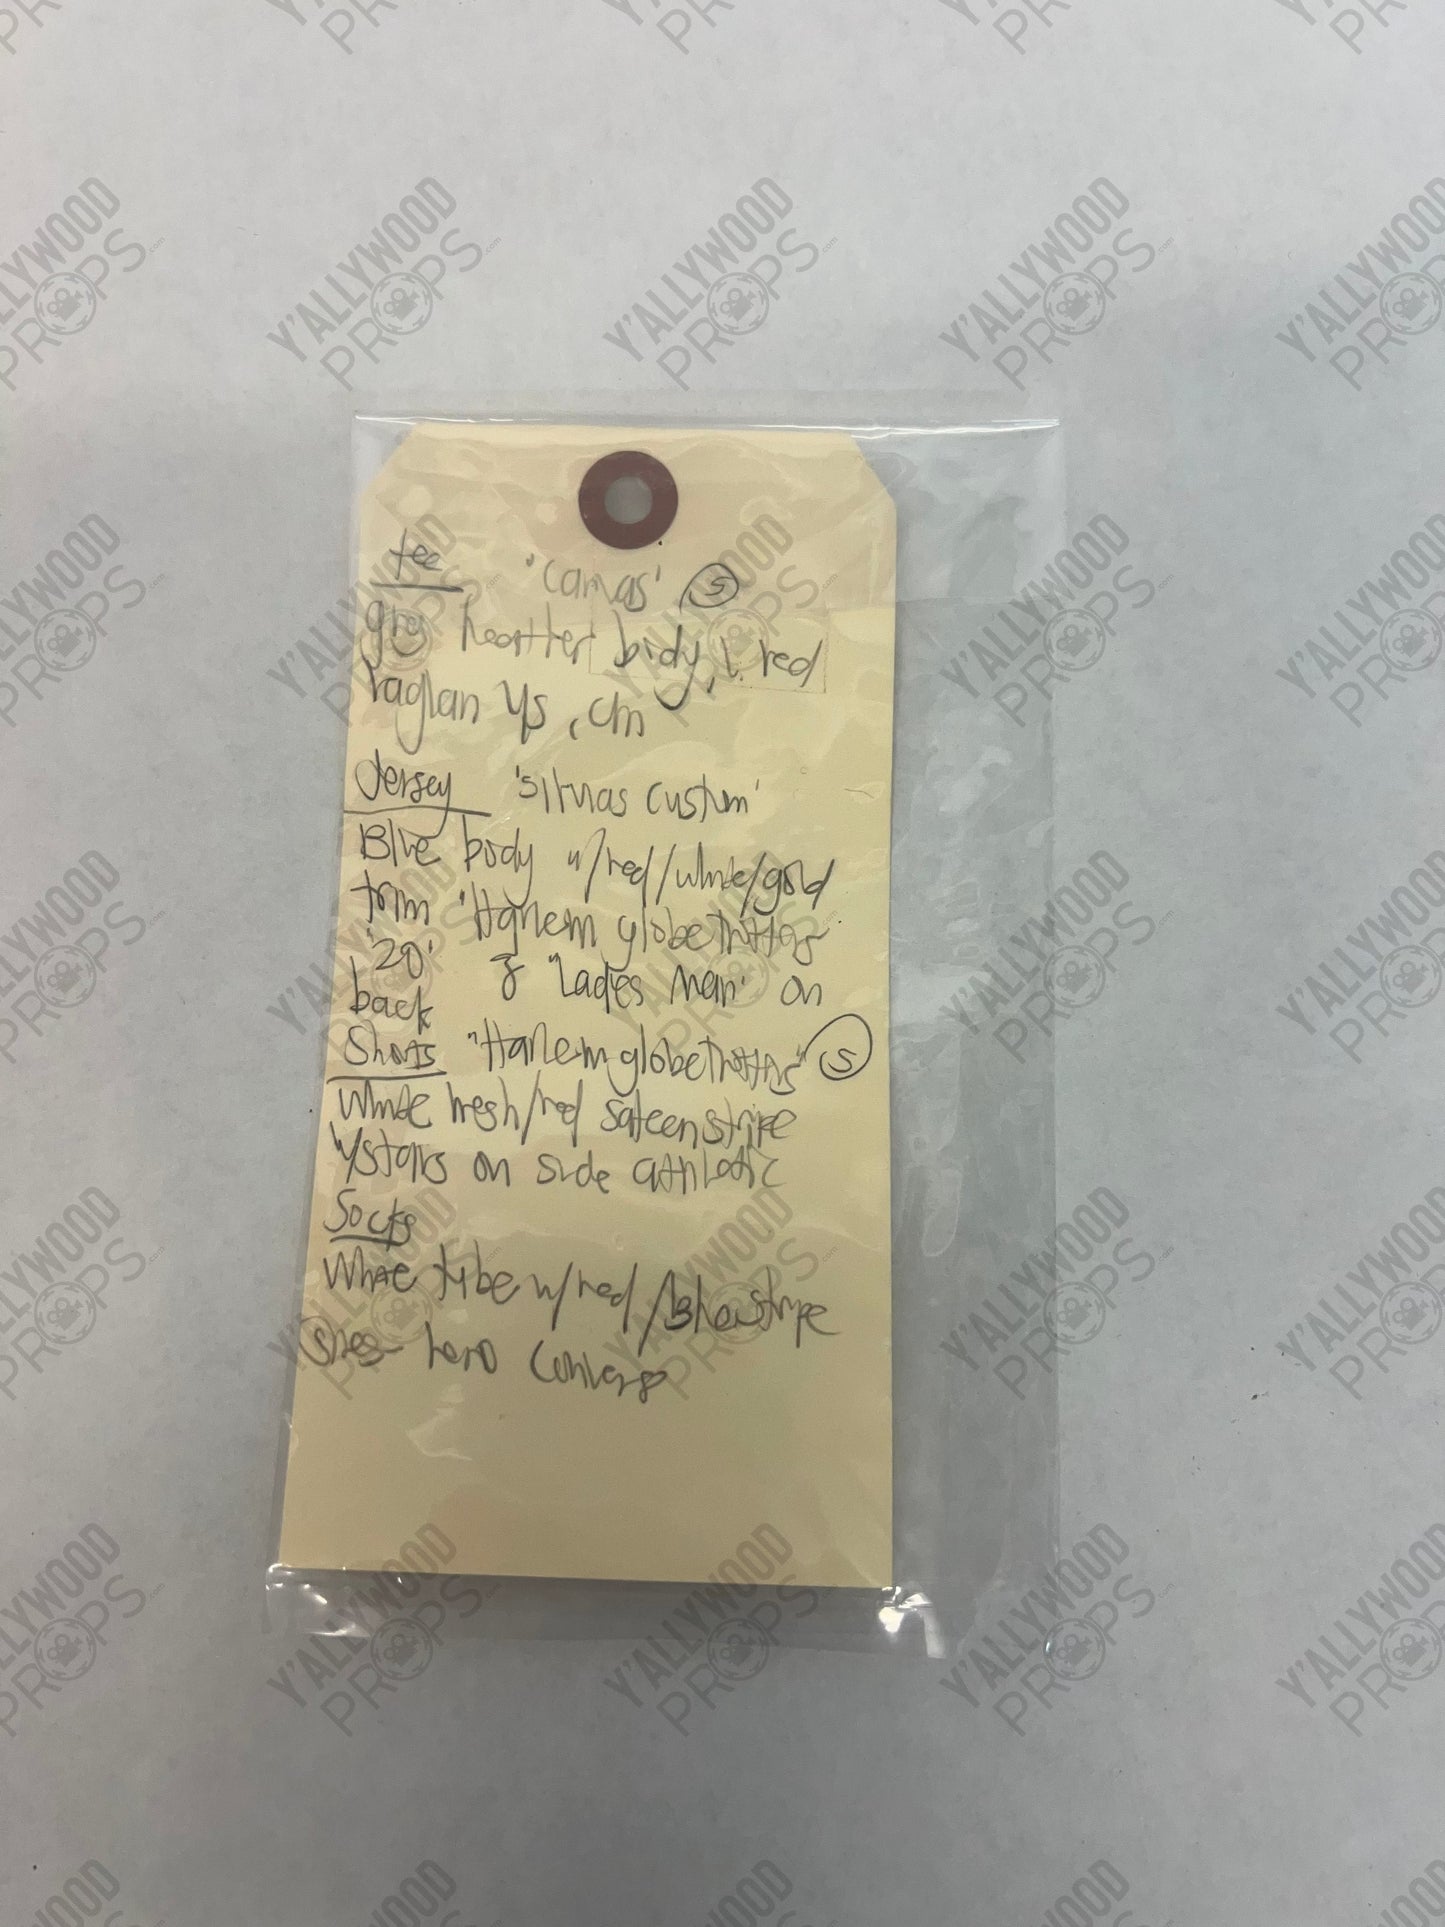 tee 'canvas' S
grey heather body, red
raglan , cm
Jersey custom'
Blue body w/red/white/gold
trim 'Harlem globetrotters
'20' & "Ladies Man' on
back
Shorts "Harlem globetrotters" S
White mesh/red sateen stripe
w/stars on side athletic
Socks
White tube w/red/Blue stripe
Shoes hero Converse
Y'ALLYWOOD
PROPS
.com